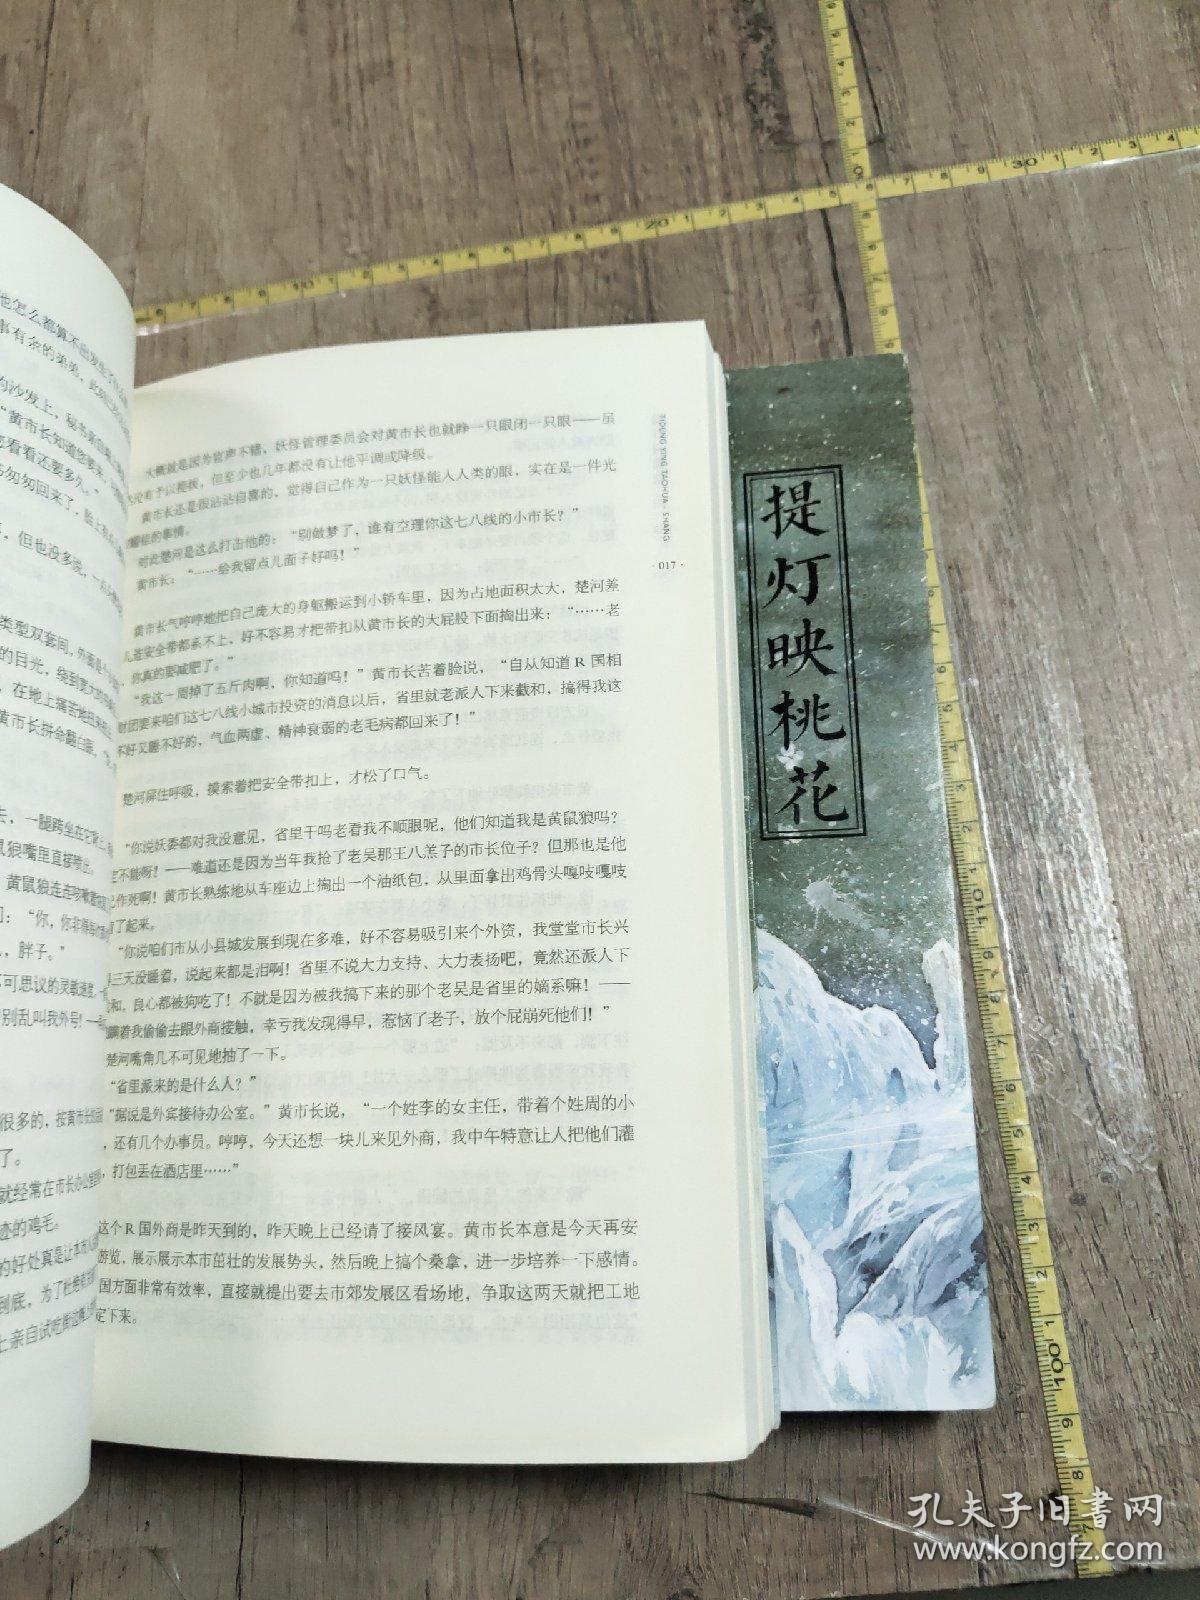 他怎么都算不出发生了什么
事有余的弟弟，此
的沙发上，秘书亲自
“黄市长知道您要来，
您看看还要多久。”
书匆匆回来了，脸上
，但也没多说，一
类型双套间，外面是
的目光，绕到宽大的
，在地上痛苦地
黄市长拼命翻白眼，
去，一腿跨坐在它
鼠狼嘴里直接喷出。
黄鼠狼连连咳嗽
：“你，你非得每
，胖子。”
不可思议的灵敏速度，
别乱叫我外号！—
很多的，按黄市长
了。
就经常在市长办公室
迹的鸡毛。
的好处真是让本市
到底，为了杜绝
上亲自试吃
大概就是因为官声不错，妖怪管理委员会对黄市长也就睁一只眼闭一只眼——虽
没有予以提拔，但至少也几年都没有让他平调或降级。
黄市长还是很沾沾自喜的，觉得自己作为一只妖怪能入人类的眼，实在是一件光
耀祖的事情。
对此楚河是这么打击他的：“别做梦了，谁有空理你这七八线的小市长？”
黄市长：“……给我留点儿面子好吗！”
黄市长气哼哼地把自己庞大的身躯搬运到小轿车里，因为占地面积太大，楚河差
儿连安全带都系不上，好不容易才把带扣从黄市长的大屁股下面掏出来：“……老
你真的要减肥了。”
“我这一周掉了五斤肉啊，你知道吗！”黄市长苦着脸说，“自从知道 R 国相
财团要来咱们这七八线小城市投资的消息以后，省里就老派人下来截和，搞得我这
不好又睡不好的，气血两虚、精神衰弱的老毛病都回来了！”
楚河屏住呼吸，摸索着把安全带扣上，才松了口气。
“你说妖委都对我没意见，省里干吗老看我不顺眼呢，他们知道我是黄鼠狼吗？
定不能呀！——难道还是因为当年我抢了老吴那王八羔子的市长位子？但那也是他
己作死啊！黄市长熟练地从车座边上掏出一个油纸包，从里面拿出鸡骨头嘎吱嘎吱
啃了起来。
“你说咱们市从小县城发展到现在多难，好不容易吸引来个外资，我堂堂市长兴
三天没睡着，说起来都是泪啊！省里不说大力支持、大力表扬吧，竟然还派人下
和，良心都被狗吃了！不就是因为被我搞下来的那个老吴是省里的嫡系嘛！——
瞒着我偷偷去跟外商接触，幸亏我发现得早，惹恼了老子，放个屁崩死他们！”
楚河嘴角几不可见地抽了一下。
“省里派来的是什么人？”
“据说是外宾接待办公室。”黄市长说，“一个姓李的女主任，带着个姓周的小
，还有几个办事员。哼哼，今天还想一块儿来见外商，我中午特意让人把他们灌
，打包丢在酒店里……”
这个 R 国外商是昨天到的，昨天晚上已经请了接风宴。黄市长本意是今天再安
游览，展示展示本市茁壮的发展势头，然后晚上搞个桑拿，进一步培养一下感情。
国方面非常有效率，直接就提出要去市郊发展区看场地，争取这两天就把工地
定下来。
TIDENG YING TAOHUA · SHANG
· 017 ·
提灯映桃花
孔夫子旧书网
www.kongfz.com